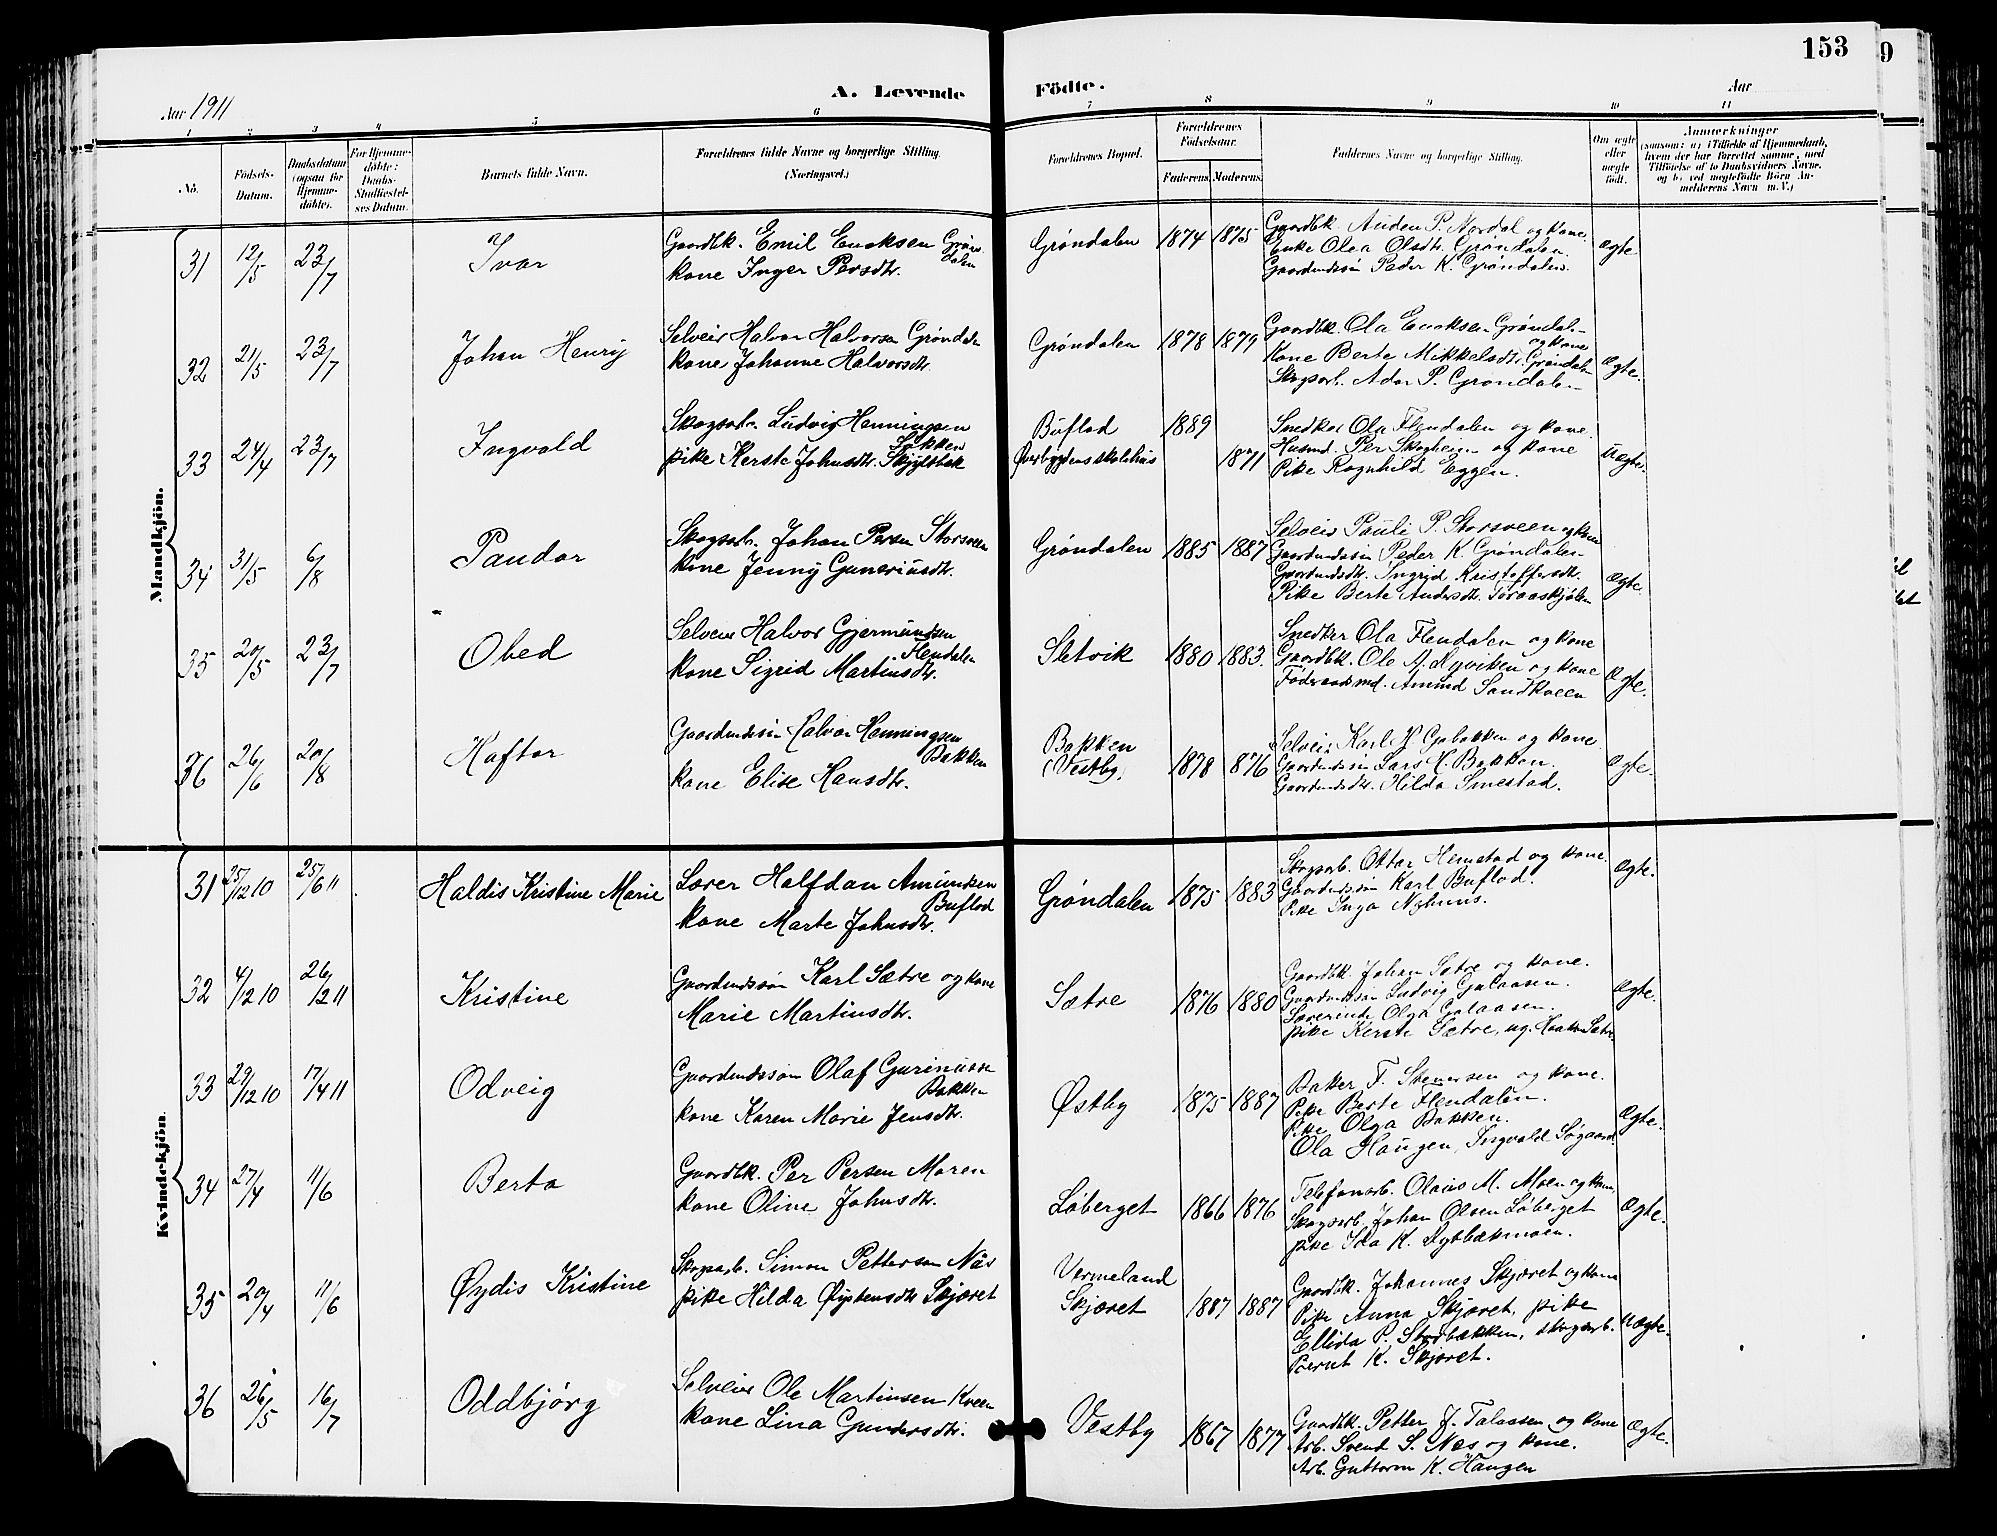 153
9
Aar 1911
A. Levende Födte.
Aar
1 2 3 4 5 6 7 8 9 10 11
No.
Födsels-Datum.
Daabsdatum (ogsaa for Hjemmedöbte).
For Hjemmedöbte: Daabs-Stadfæstelses Datum.
Barnets fulde Navn.
Forældrenes fulde Navne og borgerlige Stilling. (Næringsvei.)
Forældrenes Bopæl.
Forældrenes Födselsaar.
Faderens. Moderens.
Faddernes Navne og borgerlige Stilling.
Om ægte eller uægte födt.
Anmærkninger
(saasom: a) i Tilfælde af Hjemmedaab, hvem der har forrettet samme, med Tilföielse af to Daabsvidners Navne, og b) ved uægtefödte Börn Anmelderens Navn m. V.)
Mandkjön.
31 12/5 23/7 Ivar
Gaardbk. Emil Enoksen Grøndalen
kone Inger Persdtr.
Grøndalen 1874 1875
Gaardbk. Auden P. Nordal og kone.
Enke Olea Olsdtr. Grøndalen.
Gaardmdssøn Peder K. Grøndalen.
ægte
32 21/5 23/7 Johan Henry
Selveier Halvor Halvorsen Grøndalen
kone Johanne Halvorsdtr.
Grøndalen 1878 1879
Gaardbk. Ola Enoksen Grøndalen
og kone
Kone Berte Mikkelsdtr. Grøndalen
Skogsarb. Ador P. Grøndalen
ægte.
33 24/4 23/7 Ingvald
Skogsarb. Ludvig Henningsen
Løkken
pike Kerste Johnsdtr. Skjylbæk
Buflod 1889
Øverbygdens skolehus 1871
Snedker Ola Flendalen og kone.
Husmd. Per Skogheim og kone
Pike Ragnhild Eggen.
uægte.
34 31/5 6/8 Pandor
Skogsarb. Johan Persen Storsveen
Kone Jenny Guneriusdtr.
Grøndalen 1885 1887
Selveier Pauli P. Storsveen og kone
Gaardmdssøn Peder K. Grøndalen
Gaardmdsdtr. Ingrid Kristoffersdtr.
Pike Berte Andersdtr. Toraaskjølen
ægte.
35 20/5 23/7 Obed
Selveier Halvor Gjermundsen
Flendalen
kone Sigrid Martinusdtr.
Sletvik 1880 1883.
Snedker Ola Flendalen og kone
Gaardbk. Ole A. Nyviken og kone
Føderaadsmd. Amund Sandkveen
ægte.
36 26/6 20/8 Haftor
Gaardmdssøn Halvor Henningsen
Bakken
kone Elise Hansdtr.
Bakken
(Vestby) 1878 1876
Selveier Karl H Galaakken og kone
Gaardmdssøn Lars H. Bakken.
Gaardmdsdtr. Hilda Smestad.
ægte.
Kvindekjön.
31 25/12 10 25/6 11 Haldis Kristine Marie
Lærer Halfdan Amundsen
Buflod
kone Marte Johnsdtr.
Grøndalen 1875 1883
Skogsarb. Ottar Hemstad og kone.
Gaardmdssøn Karl Buflod.
Pike Inga Nyhuus.
ægte.
32 4/12 10 26/12 11 Kristine
Gaardmdssøn Karl Sætre og kone
Marie Martinsdtr.
Sætre 1876 1880
Gaardbk. Johan Sætre og kone.
Gaardmdssøn Ludvig Galaasen.
Lærerinde Olga Galaasen.
pike Kerste Sætre, ug. Haakon Sætre
ægte.
33 29/12 10 17/4 11 Odveig
Gaardmdssøn Olaf Gurinussen
Bakken
kone Karen Marie Jensdtr.
Østby 1875 1887
Baker T. Stenersen og kone.
Pike Berte Flendalen.
Pike Olga Bakken.
Ola Haugen, Ingvald Søgaard
ægte.
34 27/4 11/6 Berta
Gaardbk. Per Persen Moren
kone Oline Johnsdtr.
Løberget 1866 1876
Telefonarb. Olaus M. Moen og kone,
Skogsarb. Johan Olsen Løberget
pike Ida K. Nysbækmoen.
ægte.
35 20/4 11/6 Øydis Kristine
Skogsarb. Simon Petterson Näs
pike Hilda Øystensdtr Skjæret
Vermeland
Skjæret 1887 1887
Gaardbk. Johannes Skjæret og kone
Pike Anna Skjæret, pike
Ellida P. Storbækken, skogsarb.
Bernt K. Skjæret.
uægte.
36 26/5 16/7 Oddbjørg
Selveier Ole Martinsen Kveen
kone Lina Gundersdtr.
Vestby 1867 1877
Gaardbk. Petter J. Galaasen og kone
Arb. Svend S. Næs og kone.
Arb. Guttorm K. Haugen
ægte.